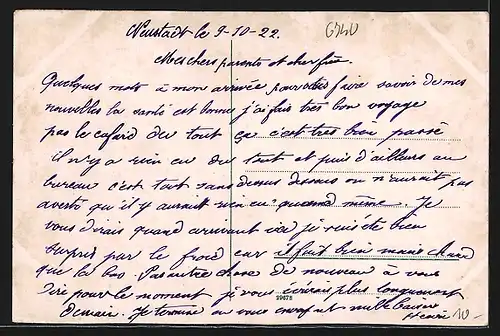 Neustadt le 9-10-22.
Mes chers parents et cher frère
Quelques mots à mon arrivée pour vous faire savoir de mes
nouvelles la santé est bonne j'ai fais très bon voyage
pas le cafard du tout ça c'est très bien passé
il n'y a rien eu du tout et puis d'ailleurs au
bureau c'est tout sans dessus dessous on n'aurait pas
averti qu'il y aurait rien eu quand même. Je
vous dirais quand arrivant ici je suis été bien
surpris par le froid car il fait bien moins chaud
que la bas. Pas autre chose de nouveau à vous
dire pour le moment je vous écrirais plus longuement
demain. Je termine en vous envoyant mille baisers
Henri
29678
10 -